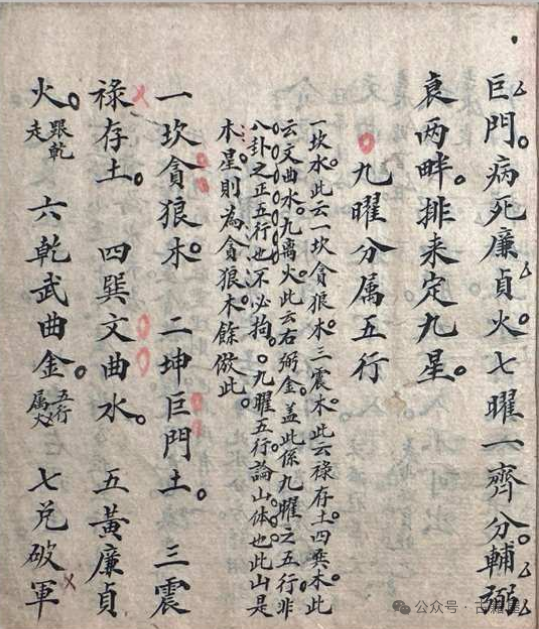 巨門。病死廉貞火。七曜一齊分。輔弼
衰两畔排来定九星。
九曜分属五行
一坎水。此云一坎貪狼木。三震木。此云禄存土。四巽木。此
云文曲水。九离火。此云右弼金。盖此係九曜之五行。非
八卦之正五行也。不必拘。〇九曜五行。論山体也。此山是
木星。則為貪狼木。餘倣此。
一坎貪狼木。 二坤巨門土。 三震
禄存土。 四巽文曲水。 五黃廉貞
火。跟乾走 六乾武曲金。五行属火 七兑破軍
公众号·古籍